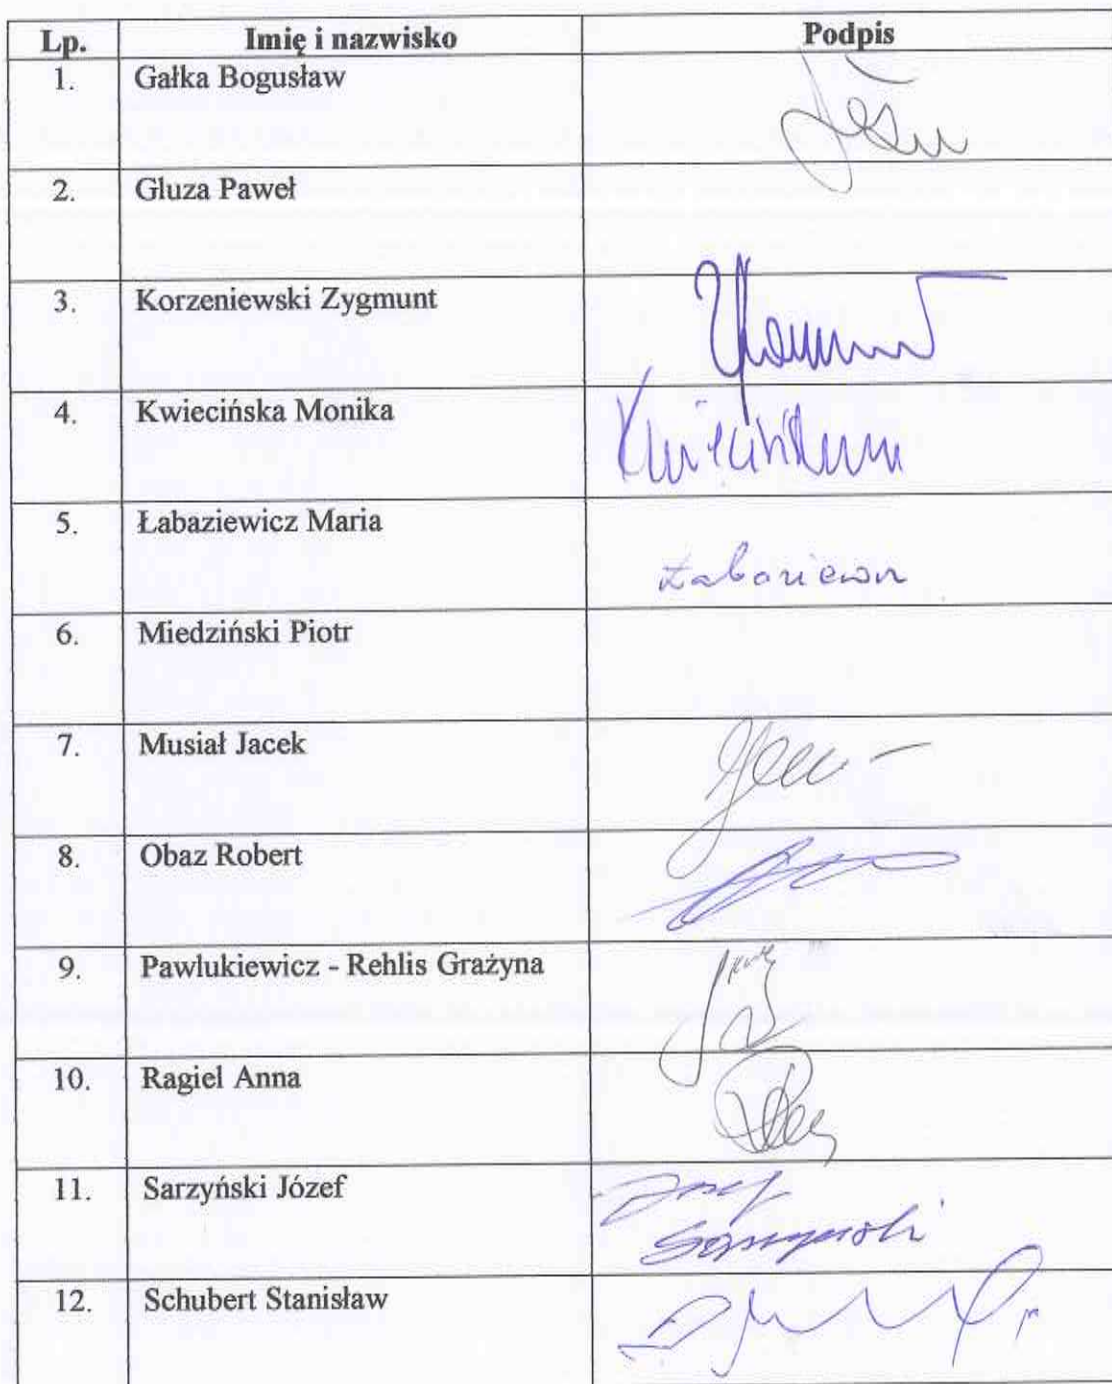 Lp. Imię i nazwisko Podpis
1. Gałka Bogusław
2. Gluza Paweł
3. Korzeniewski Zygmunt
4. Kwiecińska Monika
5. Łabaziewicz Maria
6. Miedziński Piotr
7. Musiał Jacek
8. Obaz Robert
9. Pawlukiewicz - Rehlis Grażyna
10. Ragiel Anna
11. Sarzyński Józef
12. Schubert Stanisław